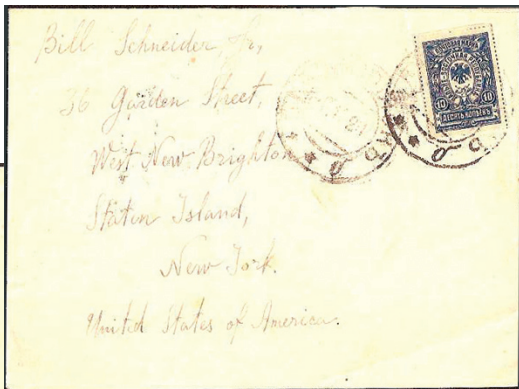 Bill Schneider, Jr,
36 Garden Street,
West New Brighton
Staten Island,
New York.
United States of America.
10 10
ДЕСЯТЬ КОПѢЕКЪ